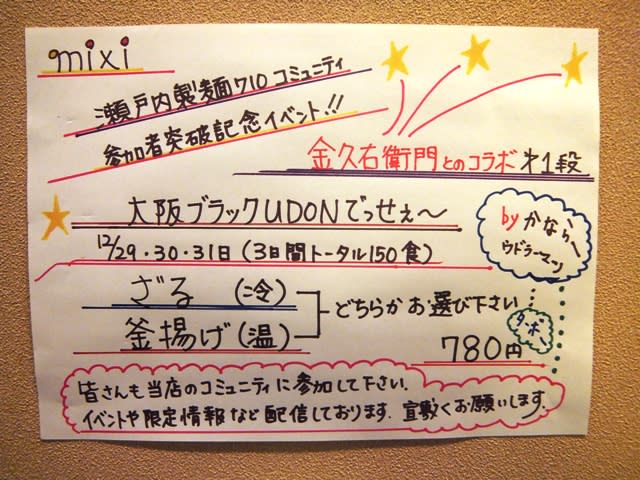 mixi
瀬戸内製麺710コミュニティ
参加者突破記念イベント!!
金久右衛門とのコラボ 才1段
大阪ブラックUDONでっせぇ〜
12/29・30・31日(3日間トータル150食)
by かならー
ウドラーマン
ざる (冷)
釜揚げ(温)
どちらかお選び下さい
ターボ
780円
皆さんも当店のコミュニティに参加して下さい.
イベントや限定情報など配信しております. 宜敷くお願いします.